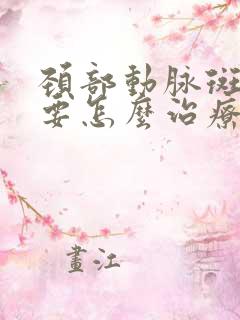 頸部動脉斑
要怎麽治療
畫江